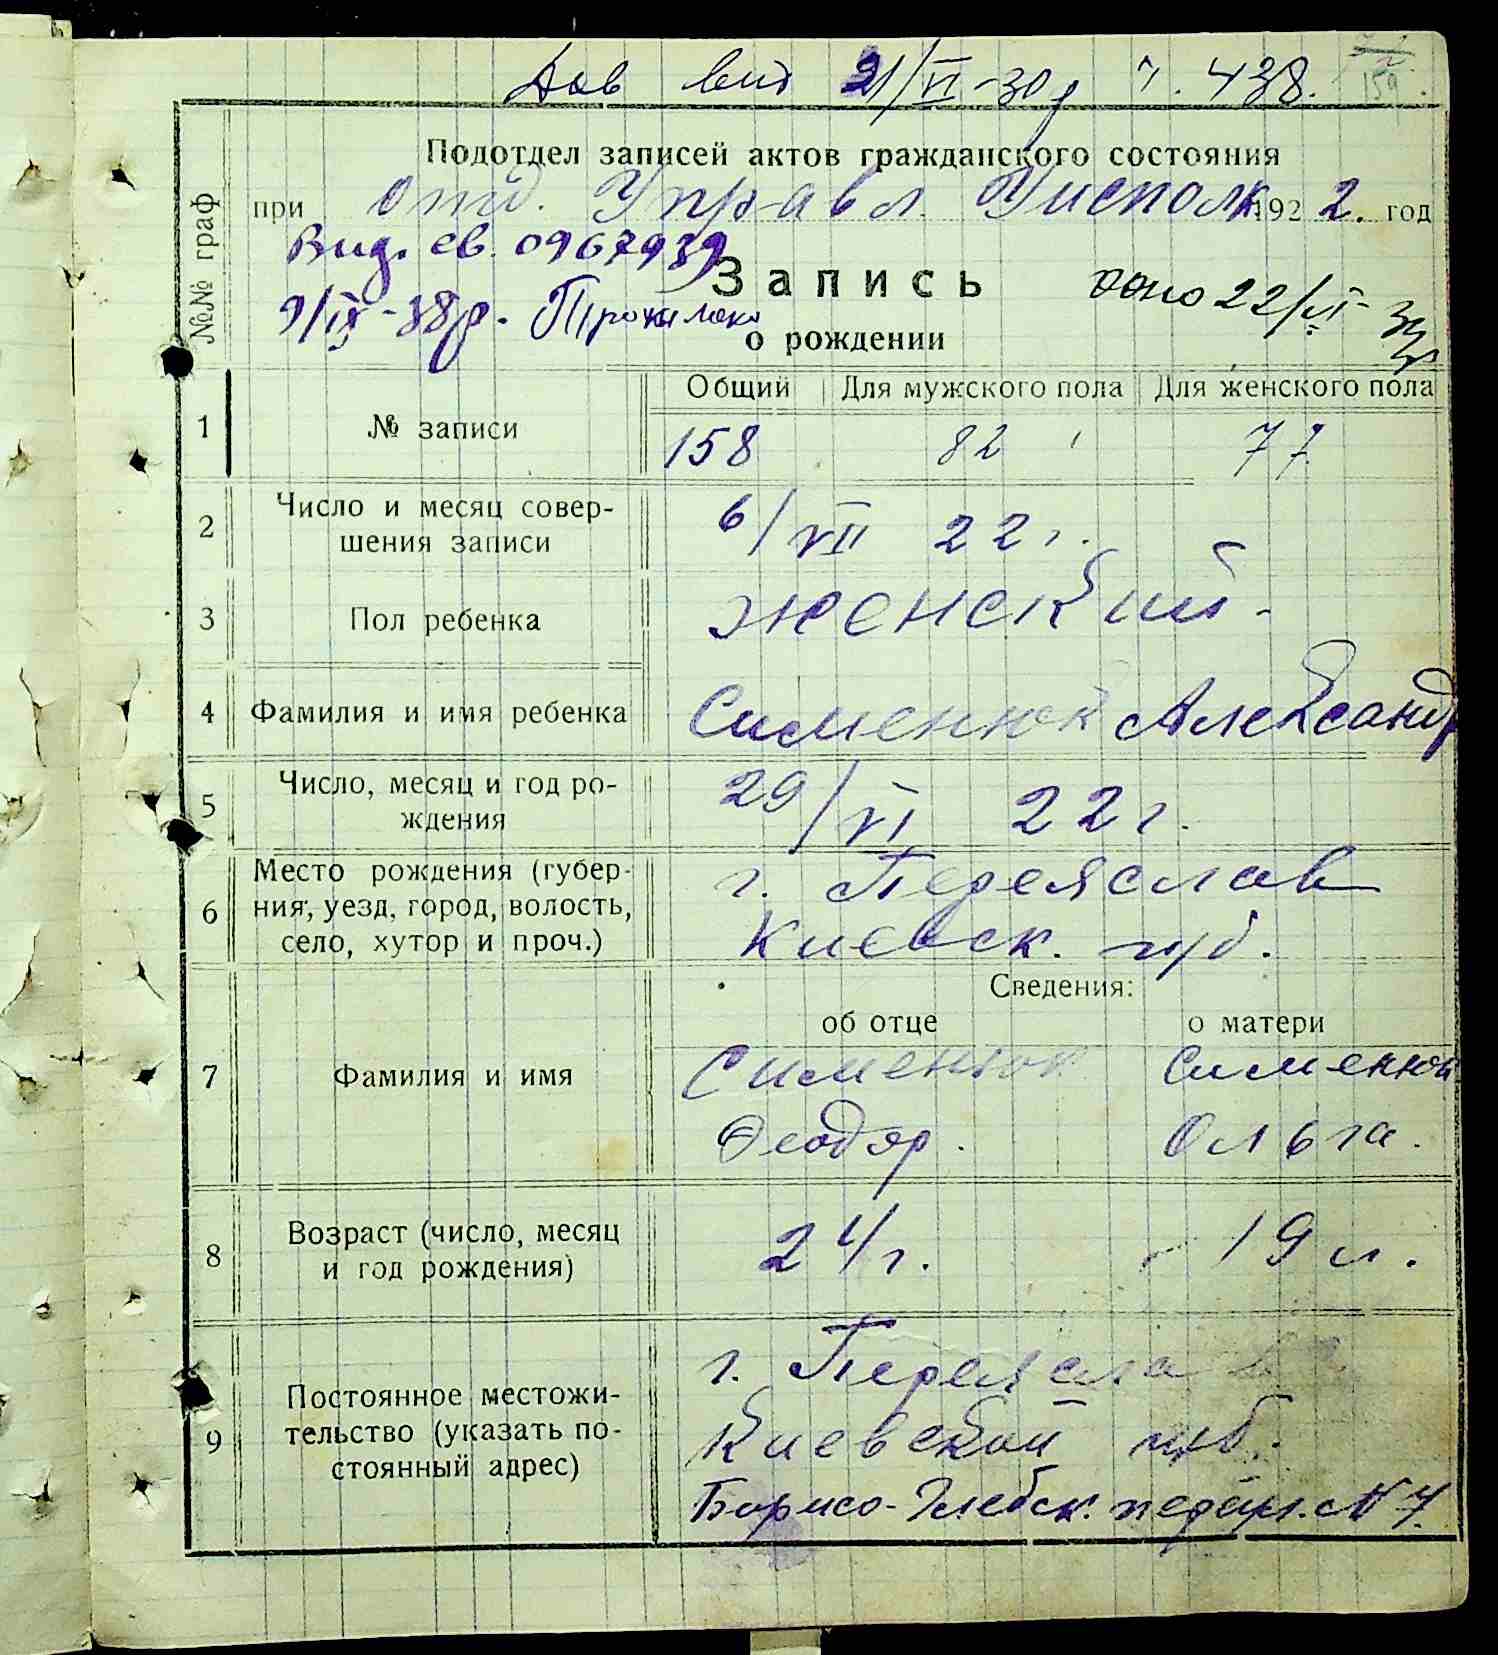 Дов вид 21/VI-30р ч. 438.
159
Подотдел записей актов гражданского состояния
при Отд. Управл. Уисполк 1922. год
Вид. св. 0967939
9/IX-38р.
Запись
22/VI-
о рождении
№№ граф
Общий Для мужского пола Для женского пола
1 № записи 158 82 77
2 Число и месяц совер-
шения записи 6/VII 22 г.
3 Пол ребенка женский-
4 Фамилия и имя ребенка Сименюк Александр
5 Число, месяц и год ро-
ждения 29/VI 22 г.
6 Место рождения (губер-
ния, уезд, город, волость,
село, хутор и проч.) г. Переяслав
Киевск. губ.
Сведения:
об отце о матери
7 Фамилия и имя Сименюк Сименюк
Феодор. Ольга.
8 Возраст (число, месяц
и год рождения) 24 г. - 19 л.
9 Постоянное местожи-
тельство (указать по-
стоянный адрес) г. Переяслав
Киевской губ.
Борисо-Глебск. переул. № 7.